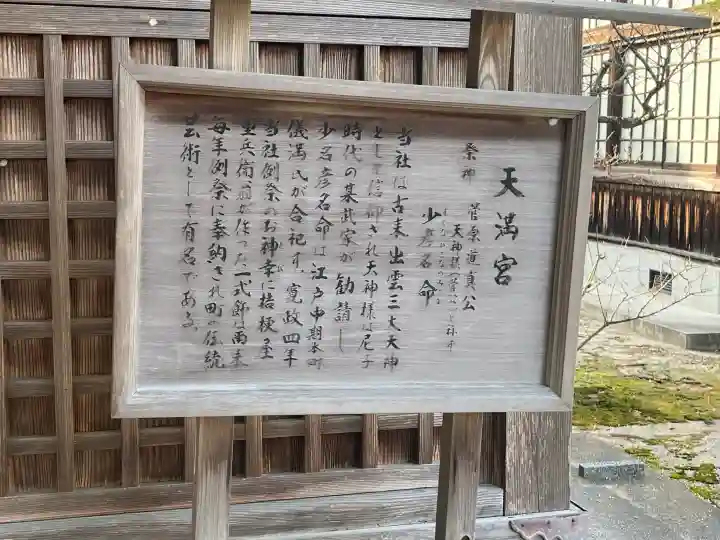 天満宮
祭神 菅原道真公
天神様(菅公)と称す
少彦名命
すくなひこなのみこと
当社は古来出雲三大天神
として信仰され天神様は尼子
時代の某武家が勧請し
少名彦名命は江戸中期本町
儀満氏が合祀す、寛政四年
当社例祭のお神幸に桔梗屋
十兵衛が作った一式飾は爾来
毎年例祭に奉納され町の伝統
芸術として有名である。